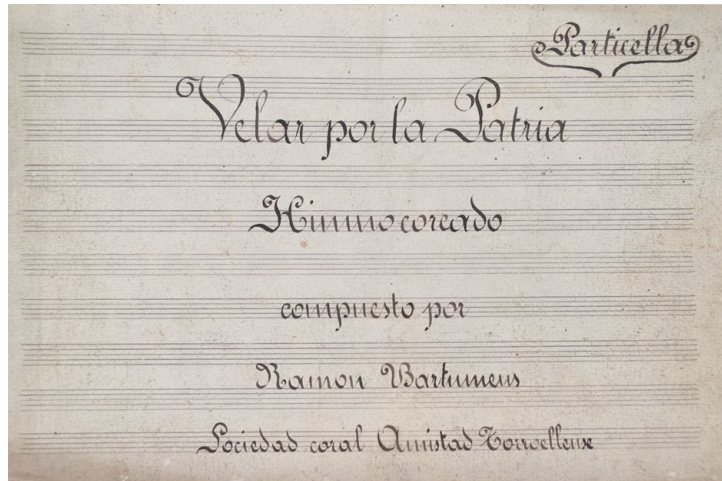 Particella
Velar por la Patria
Himno coreado
compuesto por
Ramon Bartumeus
Sociedad coral Amistad Torroellense